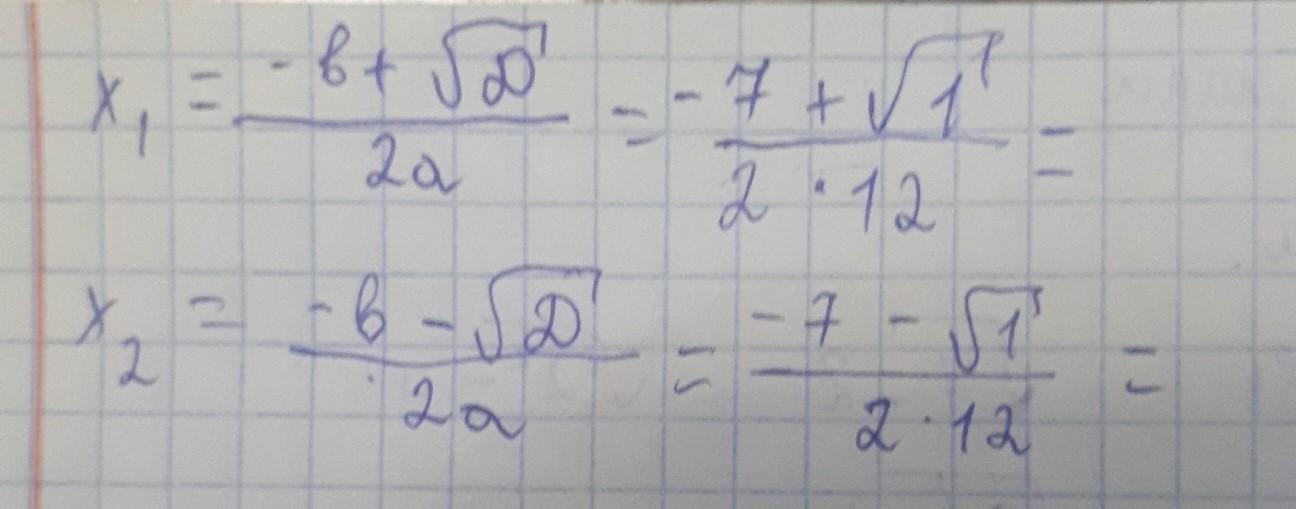 x₁ = (-b + √D) / 2a = (-7 + √1) / (2 · 12) =
x₂ = (-b - √D) / 2a = (-7 - √1) / (2 · 12) =